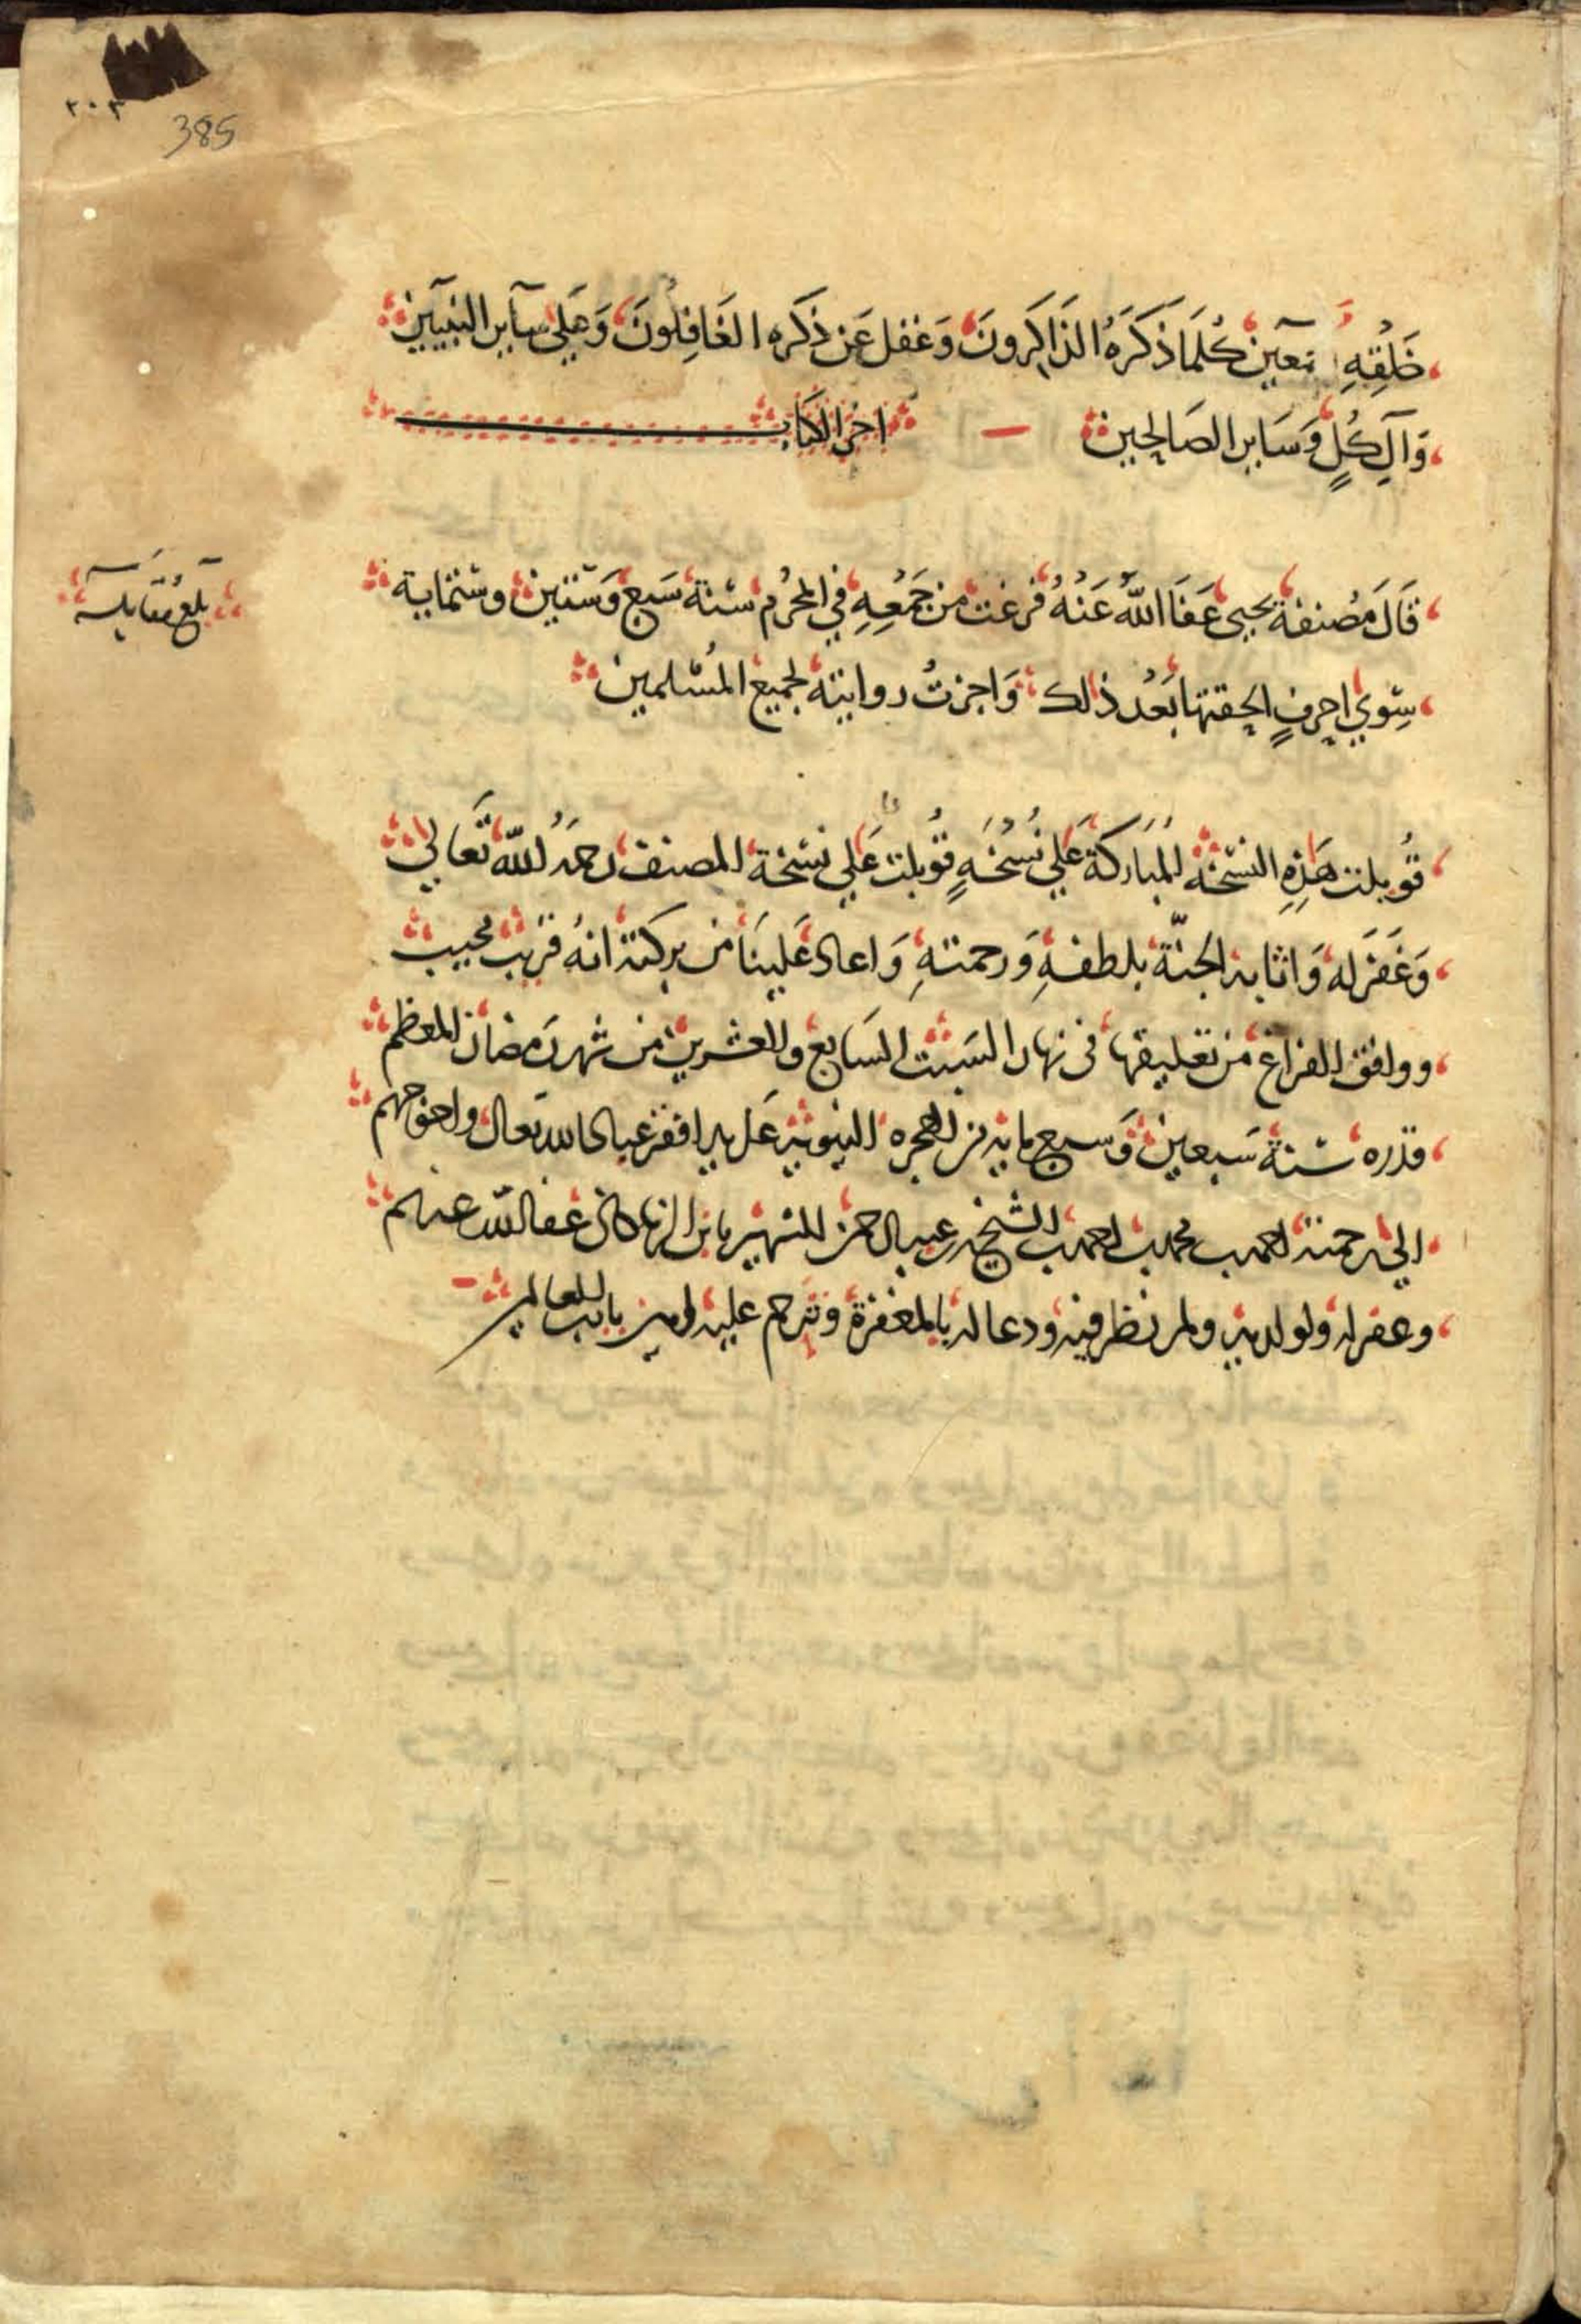 ٢٠٣
385
خَلْقِهِ اجمعين كُلمَا ذَكَرَهُ الذَاكِرونَ وَغفل عَن ذكره الغَافِلُونَ وَعَلي سآير النبيين
وَآلِ كُلٍ وَسَاير الصَالحين
اخرُ الكتاب
قَالَ مُصنفهُ يحيى عَفَا اللهُ عَنْهُ فرغت من جَمْعِهِ في المحرُم سنة سَبع وَستين وستماية
بلغ مقابلة
سِوي احرفٍ الحقتها بَعْد ذلك وَاجزتُ روايتهُ لجميع المُسْلمين
قُوبلت هَذِهِ النسْخَة المُبَاركة عَلي نُسْخَةٍ قُوبلت عَلي نسْخة المصنف رحمَهُ الله تَعَالي
وَغَفَرَ له وَاثابه الجنّة بلطفهِ وَرحمتهِ وَاعاد عَلينَا من بركته انهُ قريب مجيب
ووافق الفراغ من تعليقها فى نهار السَبت السَابع والعشرين من شهر رَمضان المعظم
قدره سنة سَبعين وَسبع مايه من الهجره النبويه عَلى يد افقر عباد الله تعالى واحوجهم
الي رحمته محمد بن الشيخ عبد الرحمن الشهير بابن عفا الله عنهم
وغفر له ولوالديه ولمن نظر فيه ودعا له بالمغفرة وترحم عليه امين يا رب العالمين